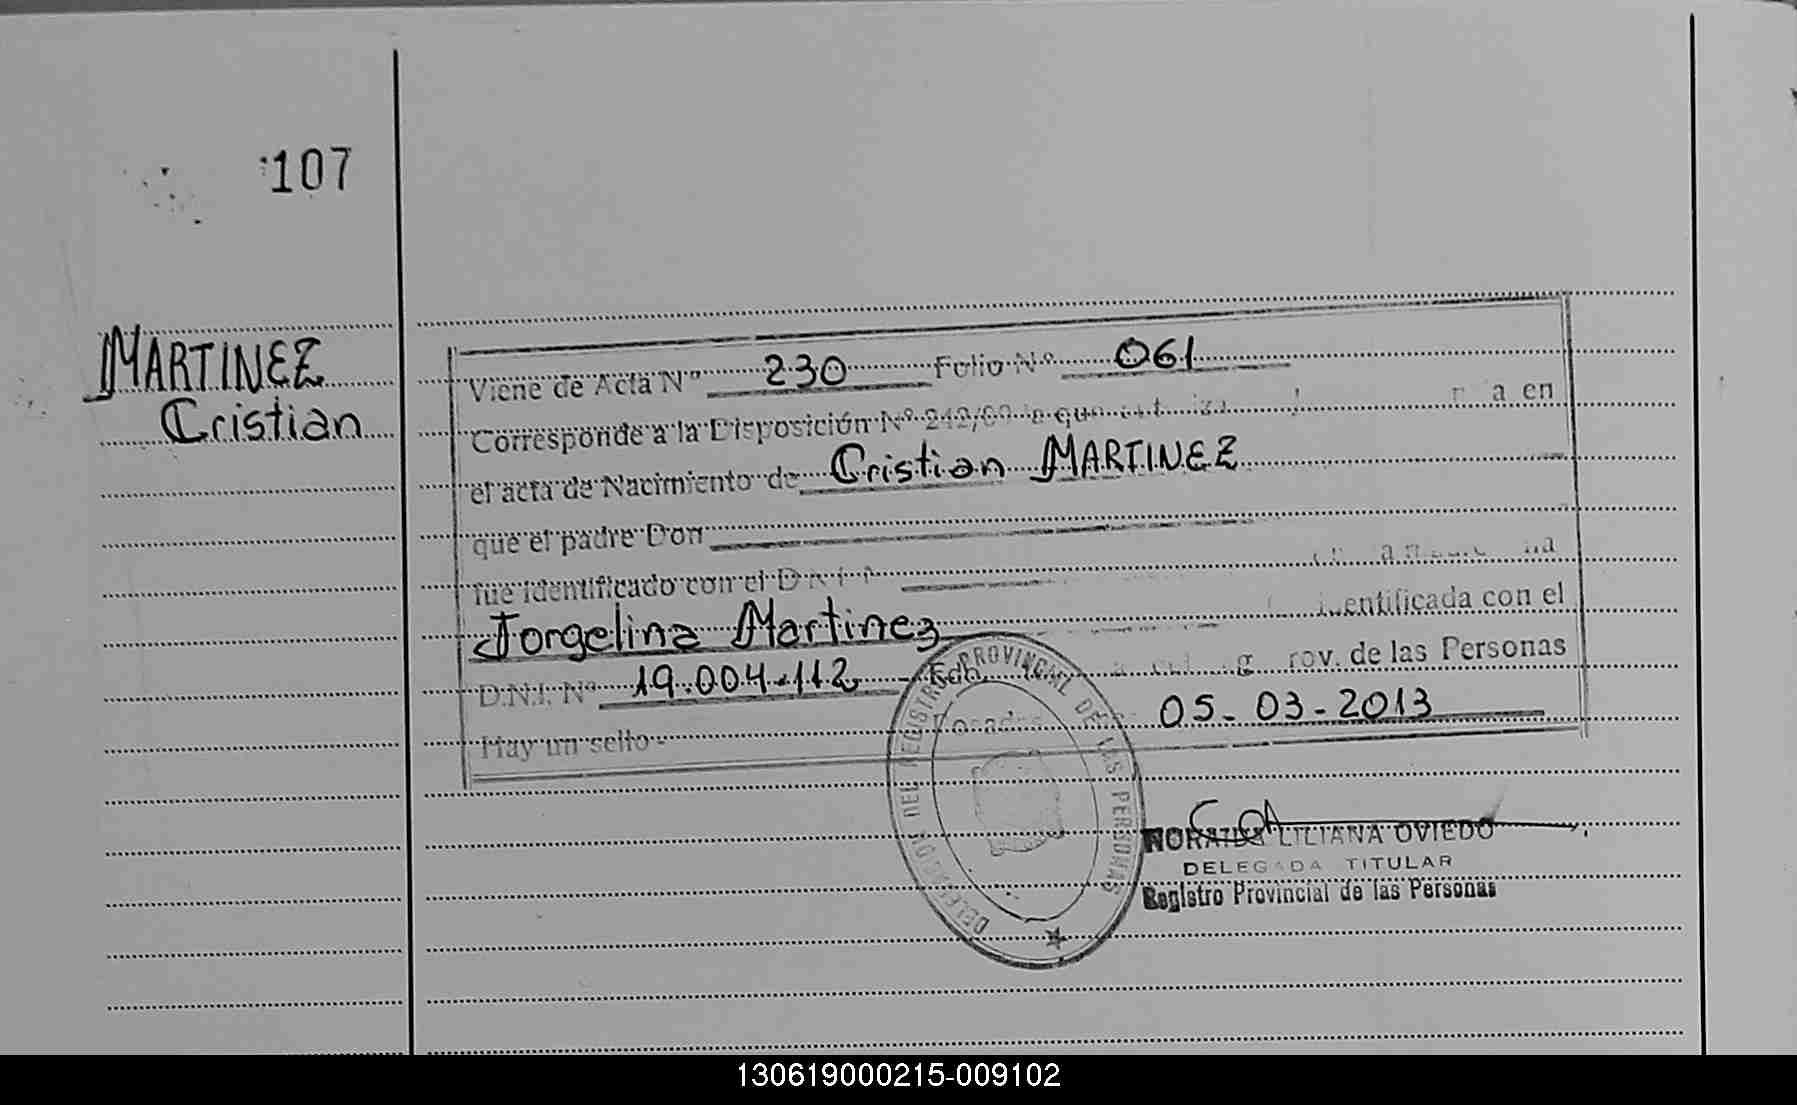 107
MARTINEZ
Cristian
Viene de Acta Nº 230 Folio Nº 061
Corresponde a la Disposición Nº 242/00 a en
el acta de Nacimiento de Cristian MARTINEZ
que el padre Don
fue identificado con el D
Jorgelina Martinez identificada con el
D.N.I. Nº 19.004.112 Prov. de las Personas
Hay un sello - Posadas 05-03-2013
DELEGACION DEL REGISTRO PROVINCIAL DE LAS PERSONAS
LILIANA OVIEDO
DELEGADA TITULAR
Registro Provincial de las Personas
130619000215-009102